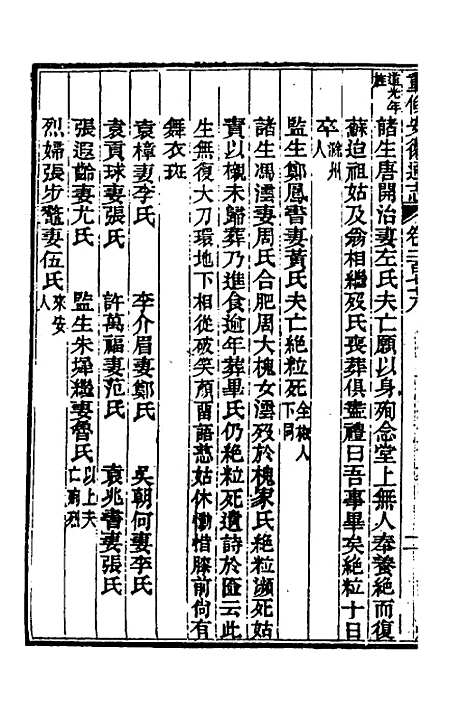 重修安徽通志 卷二百七十九
道光年旌
諸生唐開治妻左氏夫亡願以身殉念堂上無人奉養絶而復
蘇迨祖姑及翁相繼歿氏喪葬俱盡禮曰吾事畢矣絶粒十日
卒滁州人
監生鄭鳳書妻黃氏夫亡絶粒死全椒人下同
諸生馮澐妻周氏合肥周大槐女澐歿於槐家氏絶粒瀕死姑
責以櫬未歸葬乃進食逾年葬畢氏仍絶粒死遺詩於匳云此
生無復大刀環地下相從破笑顏留語慈姑休慟惜膝前尙有
舞衣斑
袁樟妻李氏 李介眉妻鄭氏 吳朝何妻李氏
袁貢球妻張氏 許萬福妻范氏 袁兆書妻張氏
張遐齡妻尤氏 監生朱墿繼妻魯氏以上夫亡殉烈
烈婦張步鼇妻伍氏來安人